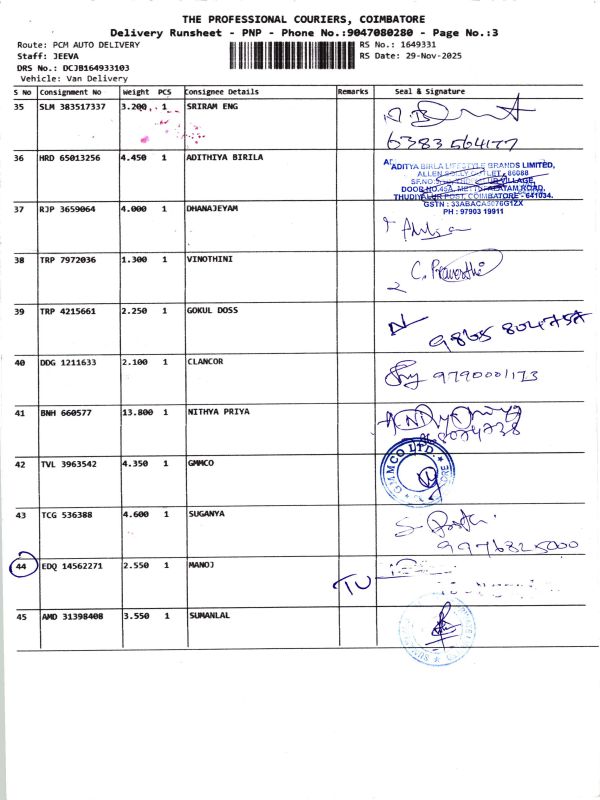 THE PROFESSIONAL COURIERS, COIMBATORE
Delivery Runsheet - PNP - Phone No.:9047080280 - Page No.:3
Route: PCM AUTO DELIVERY RS No.: 1649331
Staff: JEEVA RS Date: 29-Nov-2025
DRS No.: DCJB164933103
Vehicle: Van Delivery
S No Consignment No Weight PCS Consignee Details Remarks Seal & Signature
35 SLM 383517337 3.200 1 SRIRAM ENG
6383 564177
36 HRD 65013256 4.450 1 ADITHIYA BIRILA
ADITYA BIRLA LIFESTYLE BRANDS LIMITED,
ALLEN SOLLY OUTLET - 86088
VILLAGE,
DOOR NO.45A, ROAD,
THUDIYALUR POST, COIMBATORE - 641034.
GSTN : 33ABACA5076G1ZX
PH : 97903 19911
37 RJP 3659064 4.000 1 DHANAJEYAM
38 TRP 7972036 1.300 1 VINOTHINI
39 TRP 4215661 2.250 1 GOKUL DOSS
9865 804757
40 DDG 1211633 2.100 1 CLANCOR
9790001173
41 BNH 660577 13.800 1 NITHYA PRIYA
42 TVL 3963542 4.350 1 GMMCO
GMMCO LTD.
43 TCG 536388 4.600 1 SUGANYA
9976825000
44 EDQ 14562271 2.550 1 MANOJ
TU
45 AMD 31398408 3.550 1 SUMANLAL